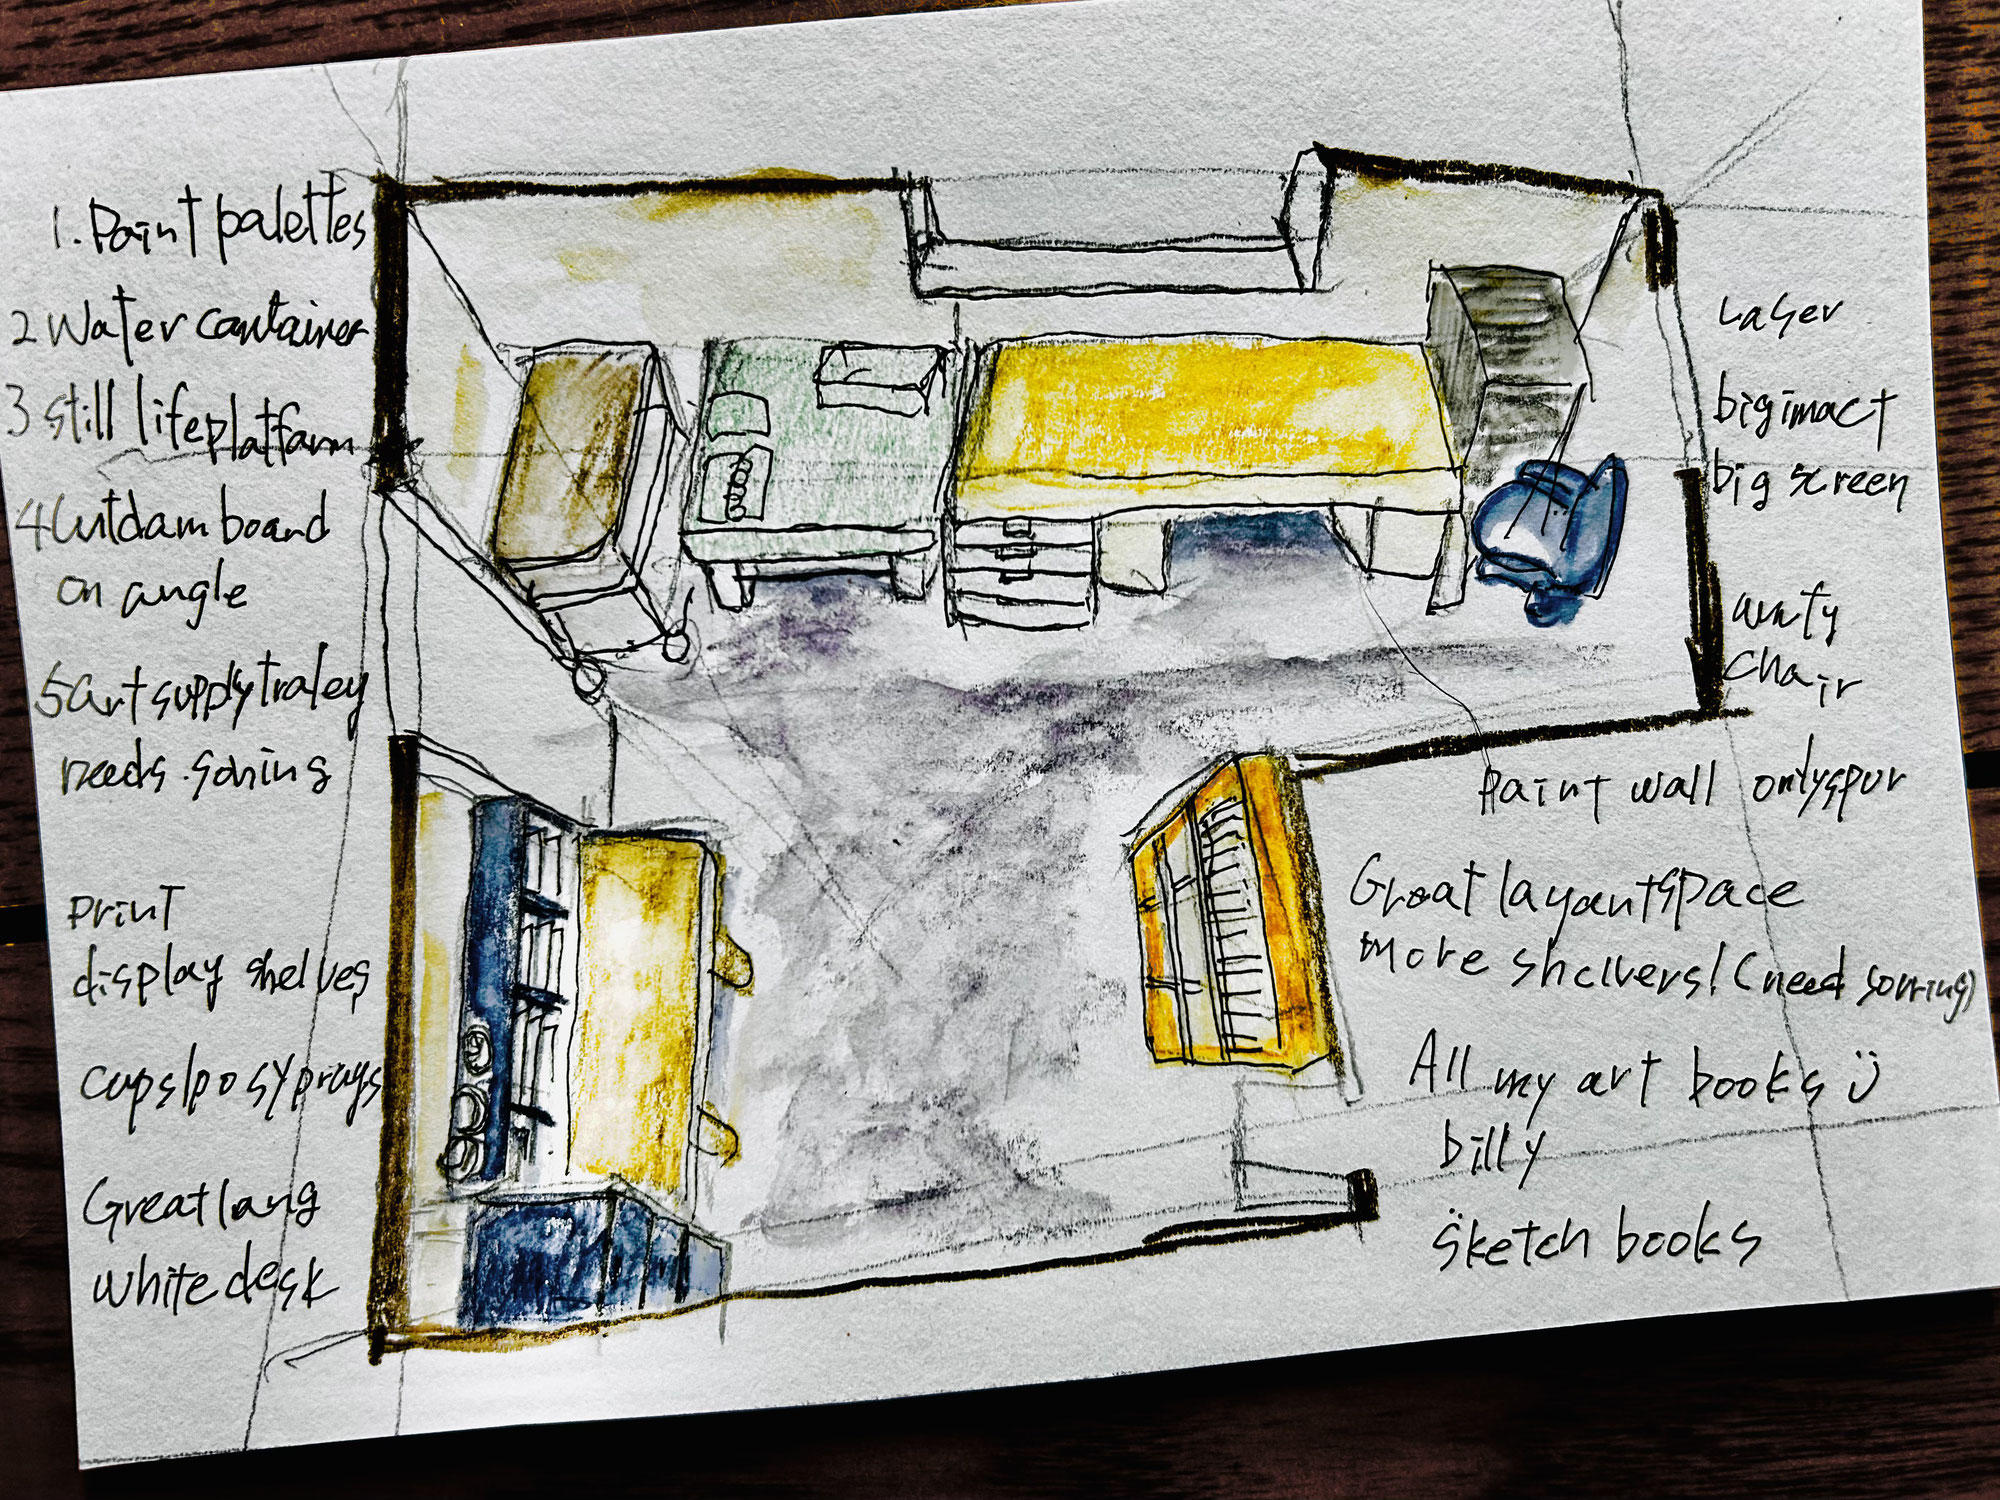 1. Paint palettes
2 Water container
3 still life platfarm
4 Cutdam board
on angle
5 art supply traley
needs soning
print
display shelves
cups/posyprays
Great lang
white desk
Laser
big imact
big screen
Chair
Paint wall only spur
Great layant space
More shelvers! (need sorring)
All my art books ü
billy
Sketch books